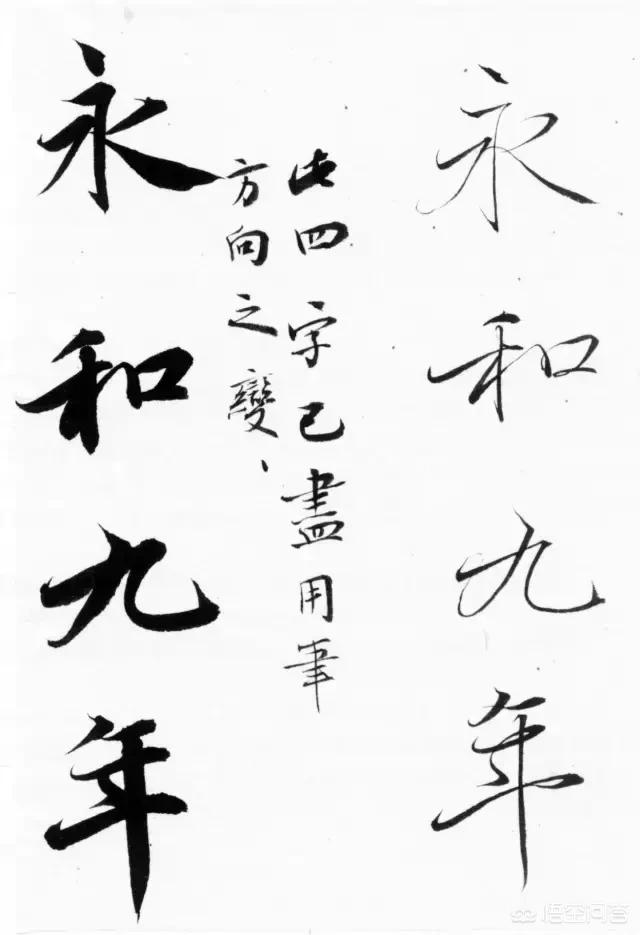 永和九年
此四字已盡用筆
方向之變、
永和九年
悟空问答